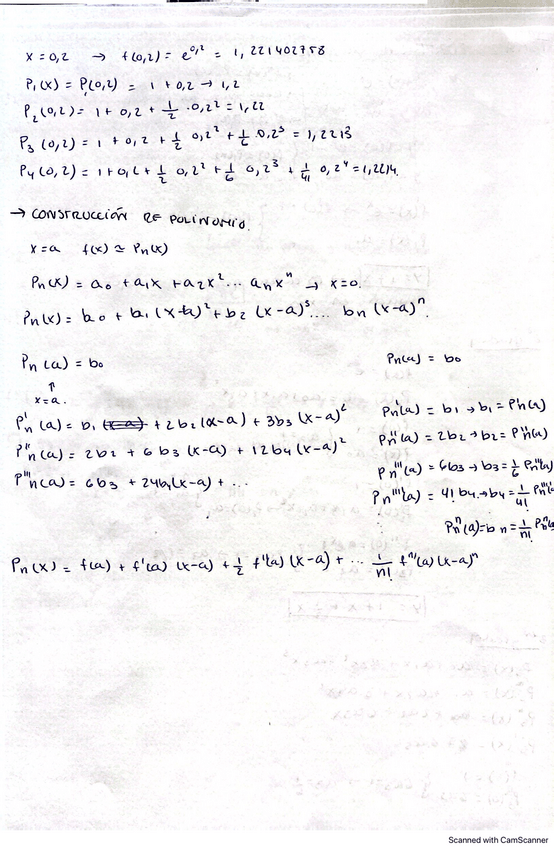 x=0,2 → f(0,2) = e^0,2 = 1,221402758
P₁(x) = P₁(0,2) = 1 + 0,2 → 1,2
P₂(0,2) = 1 + 0,2 + 1/2 · 0,2² = 1,22
P₃(0,2) = 1 + 0,2 + 1/2 0,2² + 1/6 0,2³ = 1,2213
P₄(0,2) = 1 + 0,2 + 1/2 0,2² + 1/6 0,2³ + 1/4! 0,2⁴ = 1,2214.
→ CONSTRUCCIÓN DE POLINOMIO.
x=a f(x) ≃ Pn(x)
Pn(x) = a₀ + a₁x + a₂x² ... anxⁿ → x=0.
Pn(x) = b₀ + b₁(x-a)² + b₂ (x-a)³.... bn (x-a)ⁿ.
Pn(a) = b₀ Pn(a) = b₀
↑
x=a.
P'n(a) = b₁ (x-a) + 2b₂(x-a) + 3b₃(x-a)² Pn'(a) = b₁ → b₁ = P'n(a)
P''n(a) = 2b₂ + 6b₃(x-a) + 12b₄(x-a)² Pn''(a) = 2b₂ → b₂ = P''n(a)
P'''n(a) = 6b₃ + 24b₄(x-a) + ... Pn'''(a) = 6b₃ → b₃ = 1/6 Pn'''(a)
Pn''''(a) = 4! b₄ → b₄ = 1/4! Pn''''
Pnⁿ(a) = bn = 1/n! Pnⁿ(a
Pn(x) = f(a) + f'(a) (x-a) + 1/2 f''(a) (x-a) + ... 1/n! fⁿ(a) (x-a)ⁿ
Scanned with CamScanner